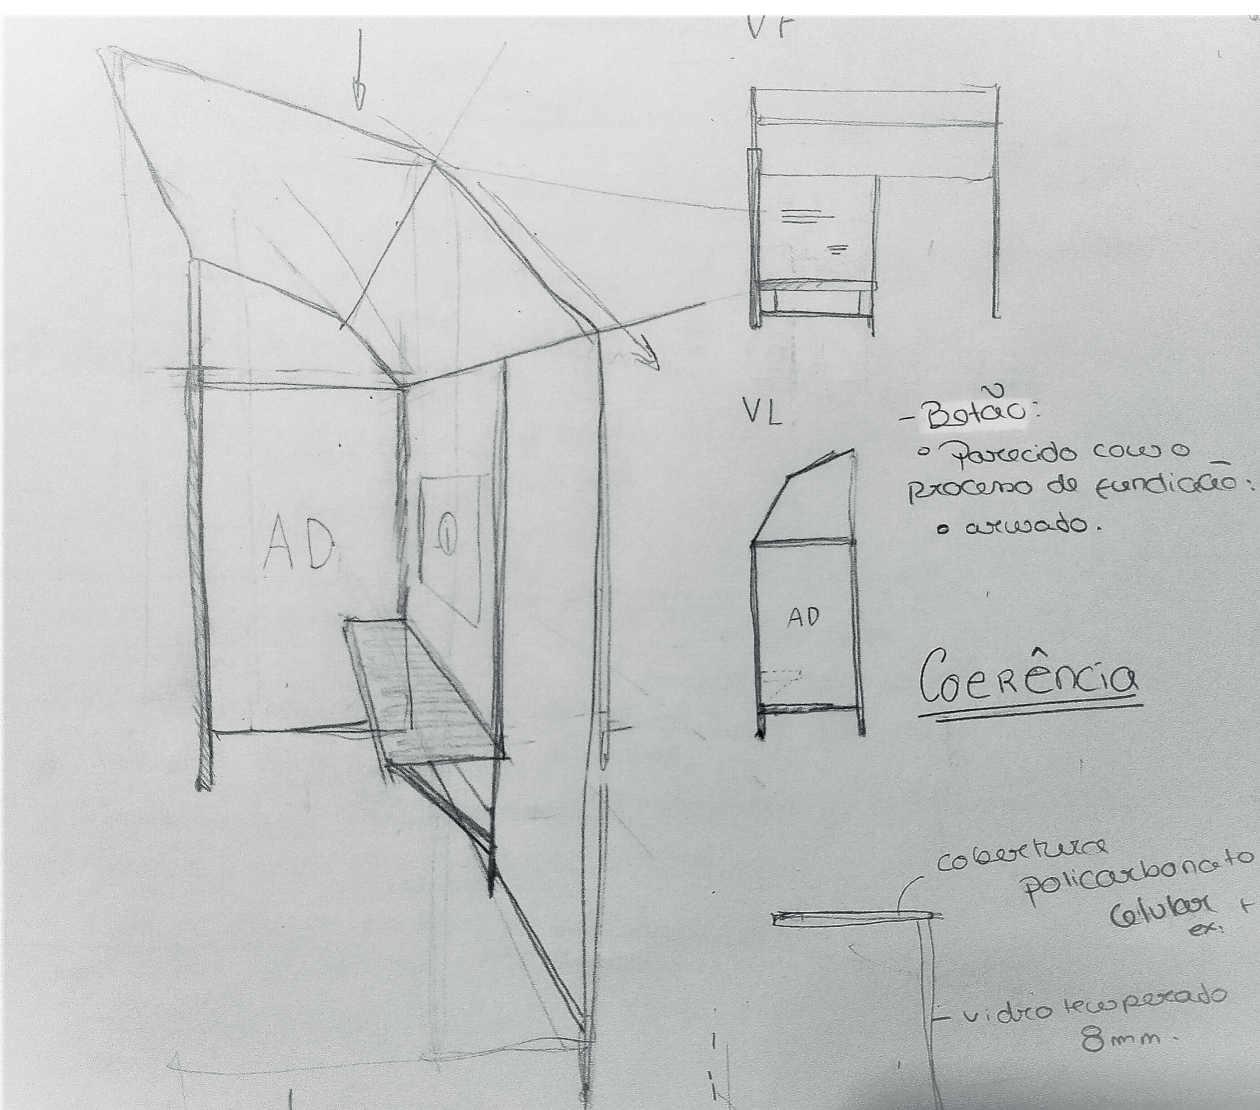 VF
VL
- Botão:
Parecido com o
processo de fundição:
armado.
AD
AD
Coerência
cobertura
policarbonato
celular +
ex:
- vidro temperado
8mm.